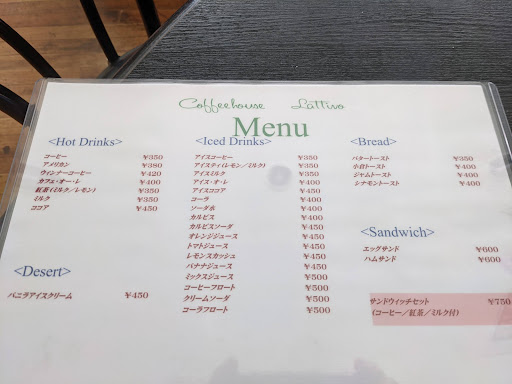 Coffeehouse Lattivo
Menu
<Hot Drinks>
コーヒー ¥350
アメリカン ¥380
ウィンナーコーヒー ¥420
カフェ・オ・レ ¥400
紅茶(ミルク/レモン) ¥350
ミルク ¥350
ココア ¥450
<Desert>
バニラアイスクリーム ¥450
<Iced Drinks>
アイスコーヒー ¥350
アイスティ(レモン/ミルク) ¥350
アイスミルク ¥350
アイス・オ・レ ¥400
アイスココア ¥450
コーラ ¥400
ソーダ水 ¥400
カルピス ¥400
カルピスソーダ ¥450
オレンジジュース ¥450
トマトジュース ¥450
レモンスカッシュ ¥450
バナナジュース ¥450
ミックスジュース ¥500
コーヒーフロート ¥500
クリームソーダ ¥500
コーラフロート ¥500
<Bread>
バタートースト ¥350
小倉トースト ¥400
ジャムトースト ¥400
シナモントースト ¥400
<Sandwich>
エッグサンド ¥600
ハムサンド ¥600
サンドウィッチセット ¥750
(コーヒー/紅茶/ミルク付)